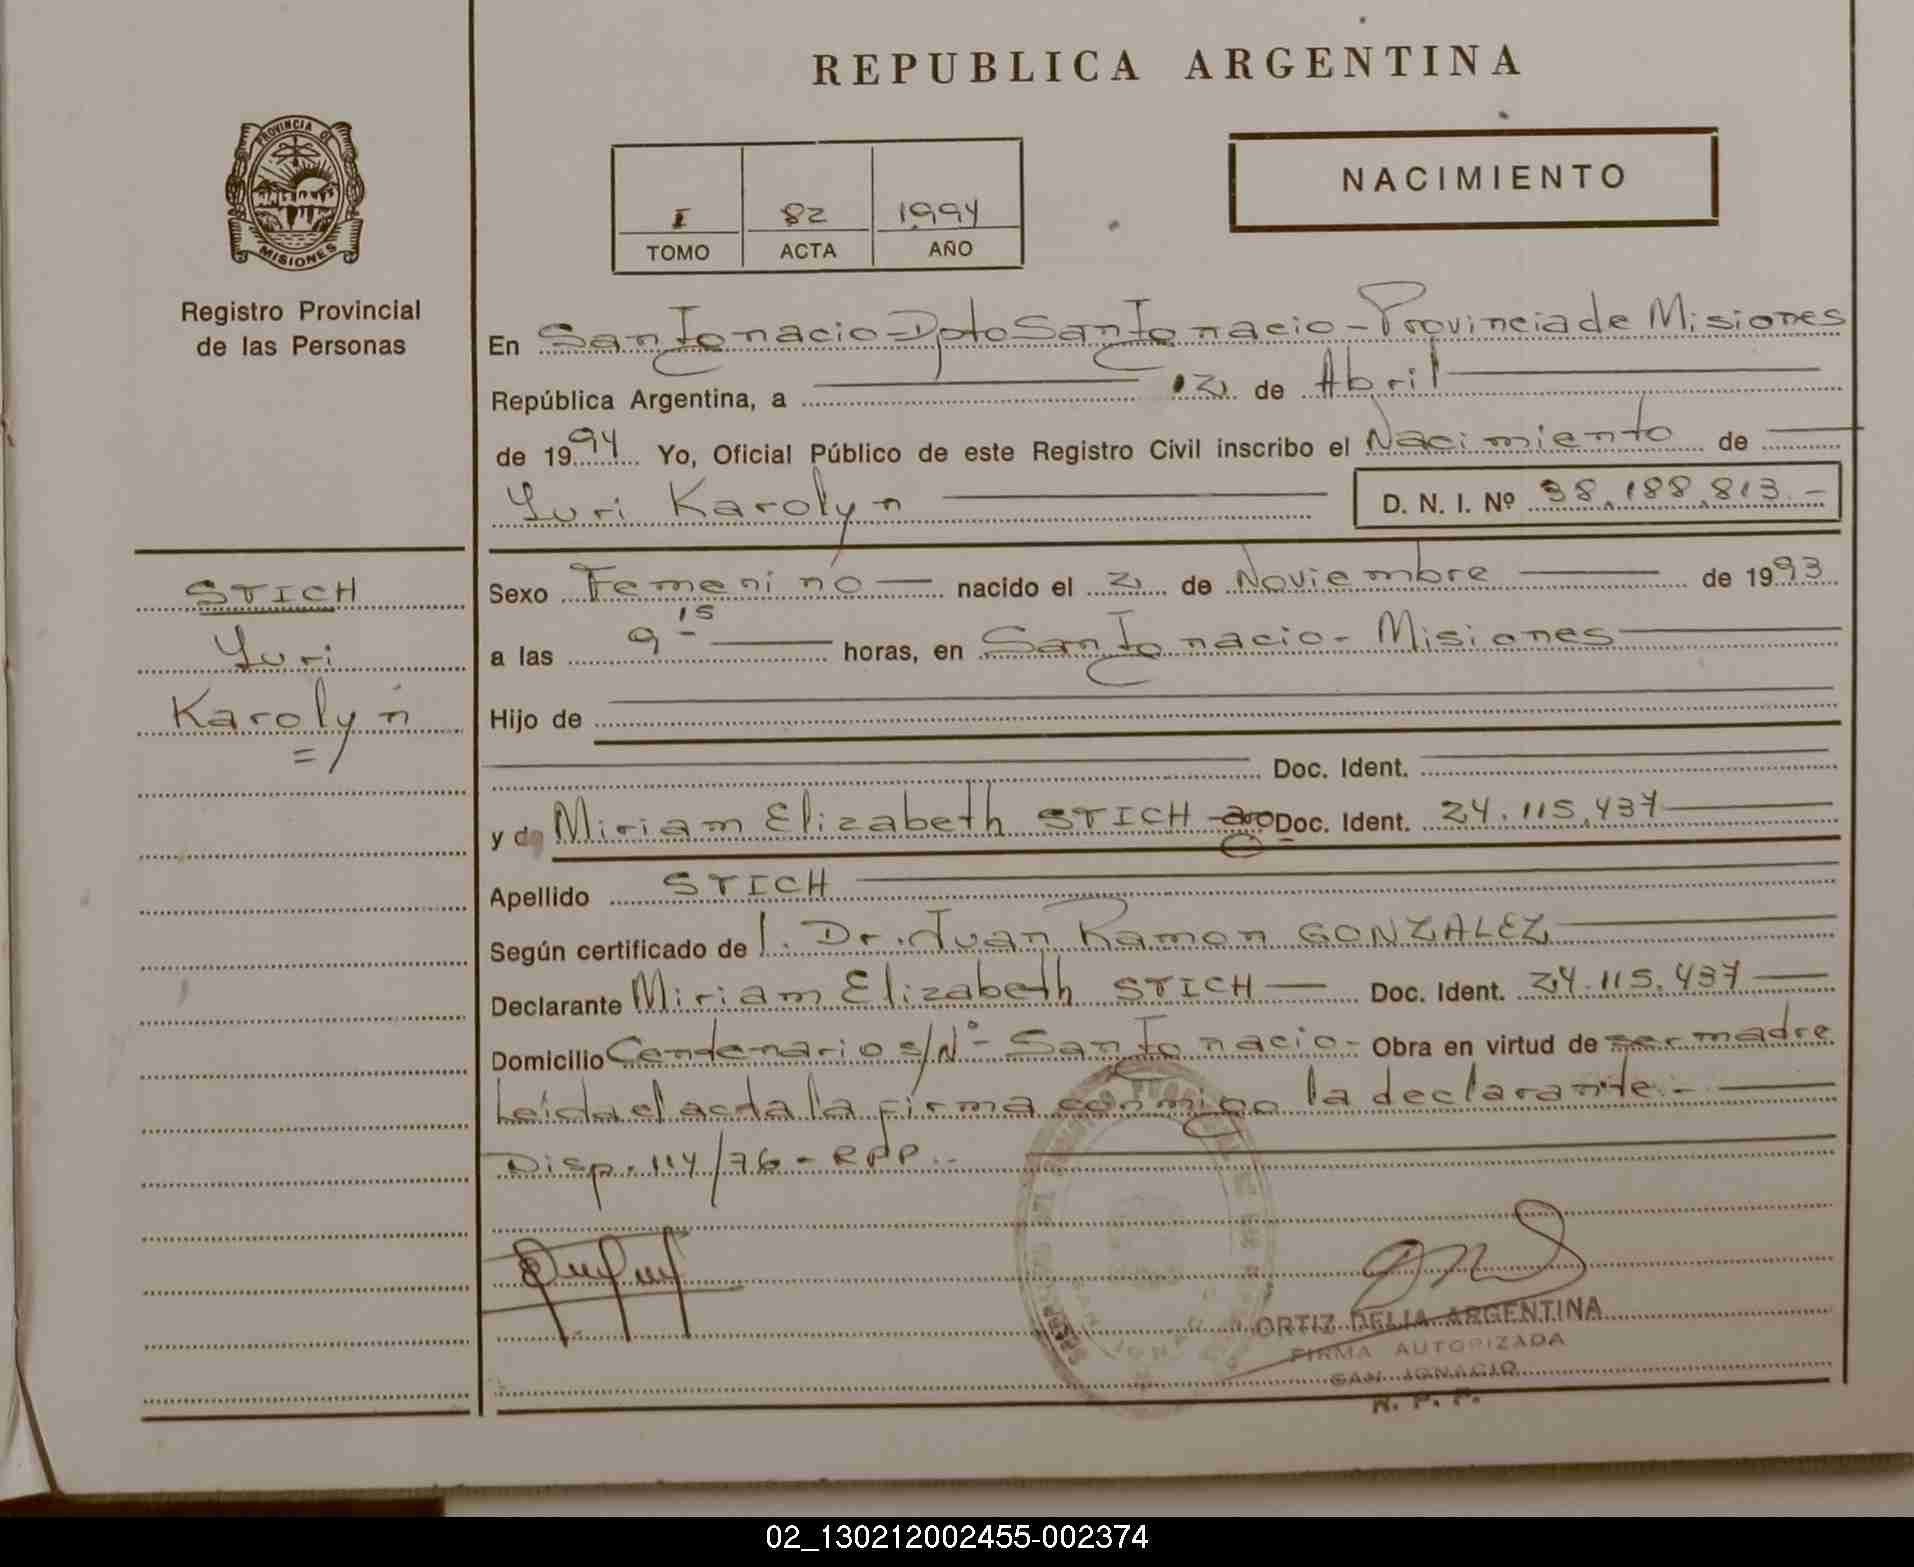 REPUBLICA ARGENTINA
PROVINCIA DE
MISIONES
Registro Provincial
de las Personas
I 82 1994
TOMO ACTA AÑO
NACIMIENTO
En San Ignacio - Dpto San Ignacio - Provincia de Misiones
República Argentina, a 12 de Abril
de 1994 Yo, Oficial Público de este Registro Civil inscribo el Nacimiento de
Yuri Karolyn D. N. I. Nº 38.188.813.-
STICH
Yuri
Karolyn
=
Sexo Femenino nacido el 2 de Noviembre de 1993
a las 9 15 horas, en San Ignacio - Misiones
Hijo de
Doc. Ident.
y de Miriam Elizabeth STICH Doc. Ident. 24.115.437
Apellido STICH
Según certificado de l. Dr. Juan Ramon GONZALEZ
Declarante Miriam Elizabeth STICH Doc. Ident. 24.115.437
Domicilio Centenario s/Nº - San Ignacio - Obra en virtud de ser madre
Leida el acta la firma conmigo la declarante.-
Disp. 114/76 - RPP.-
ORTIZ DELIA ARGENTINA
FIRMA AUTORIZADA
SAN IGNACIO
R. P. P.
02_130212002455-002374